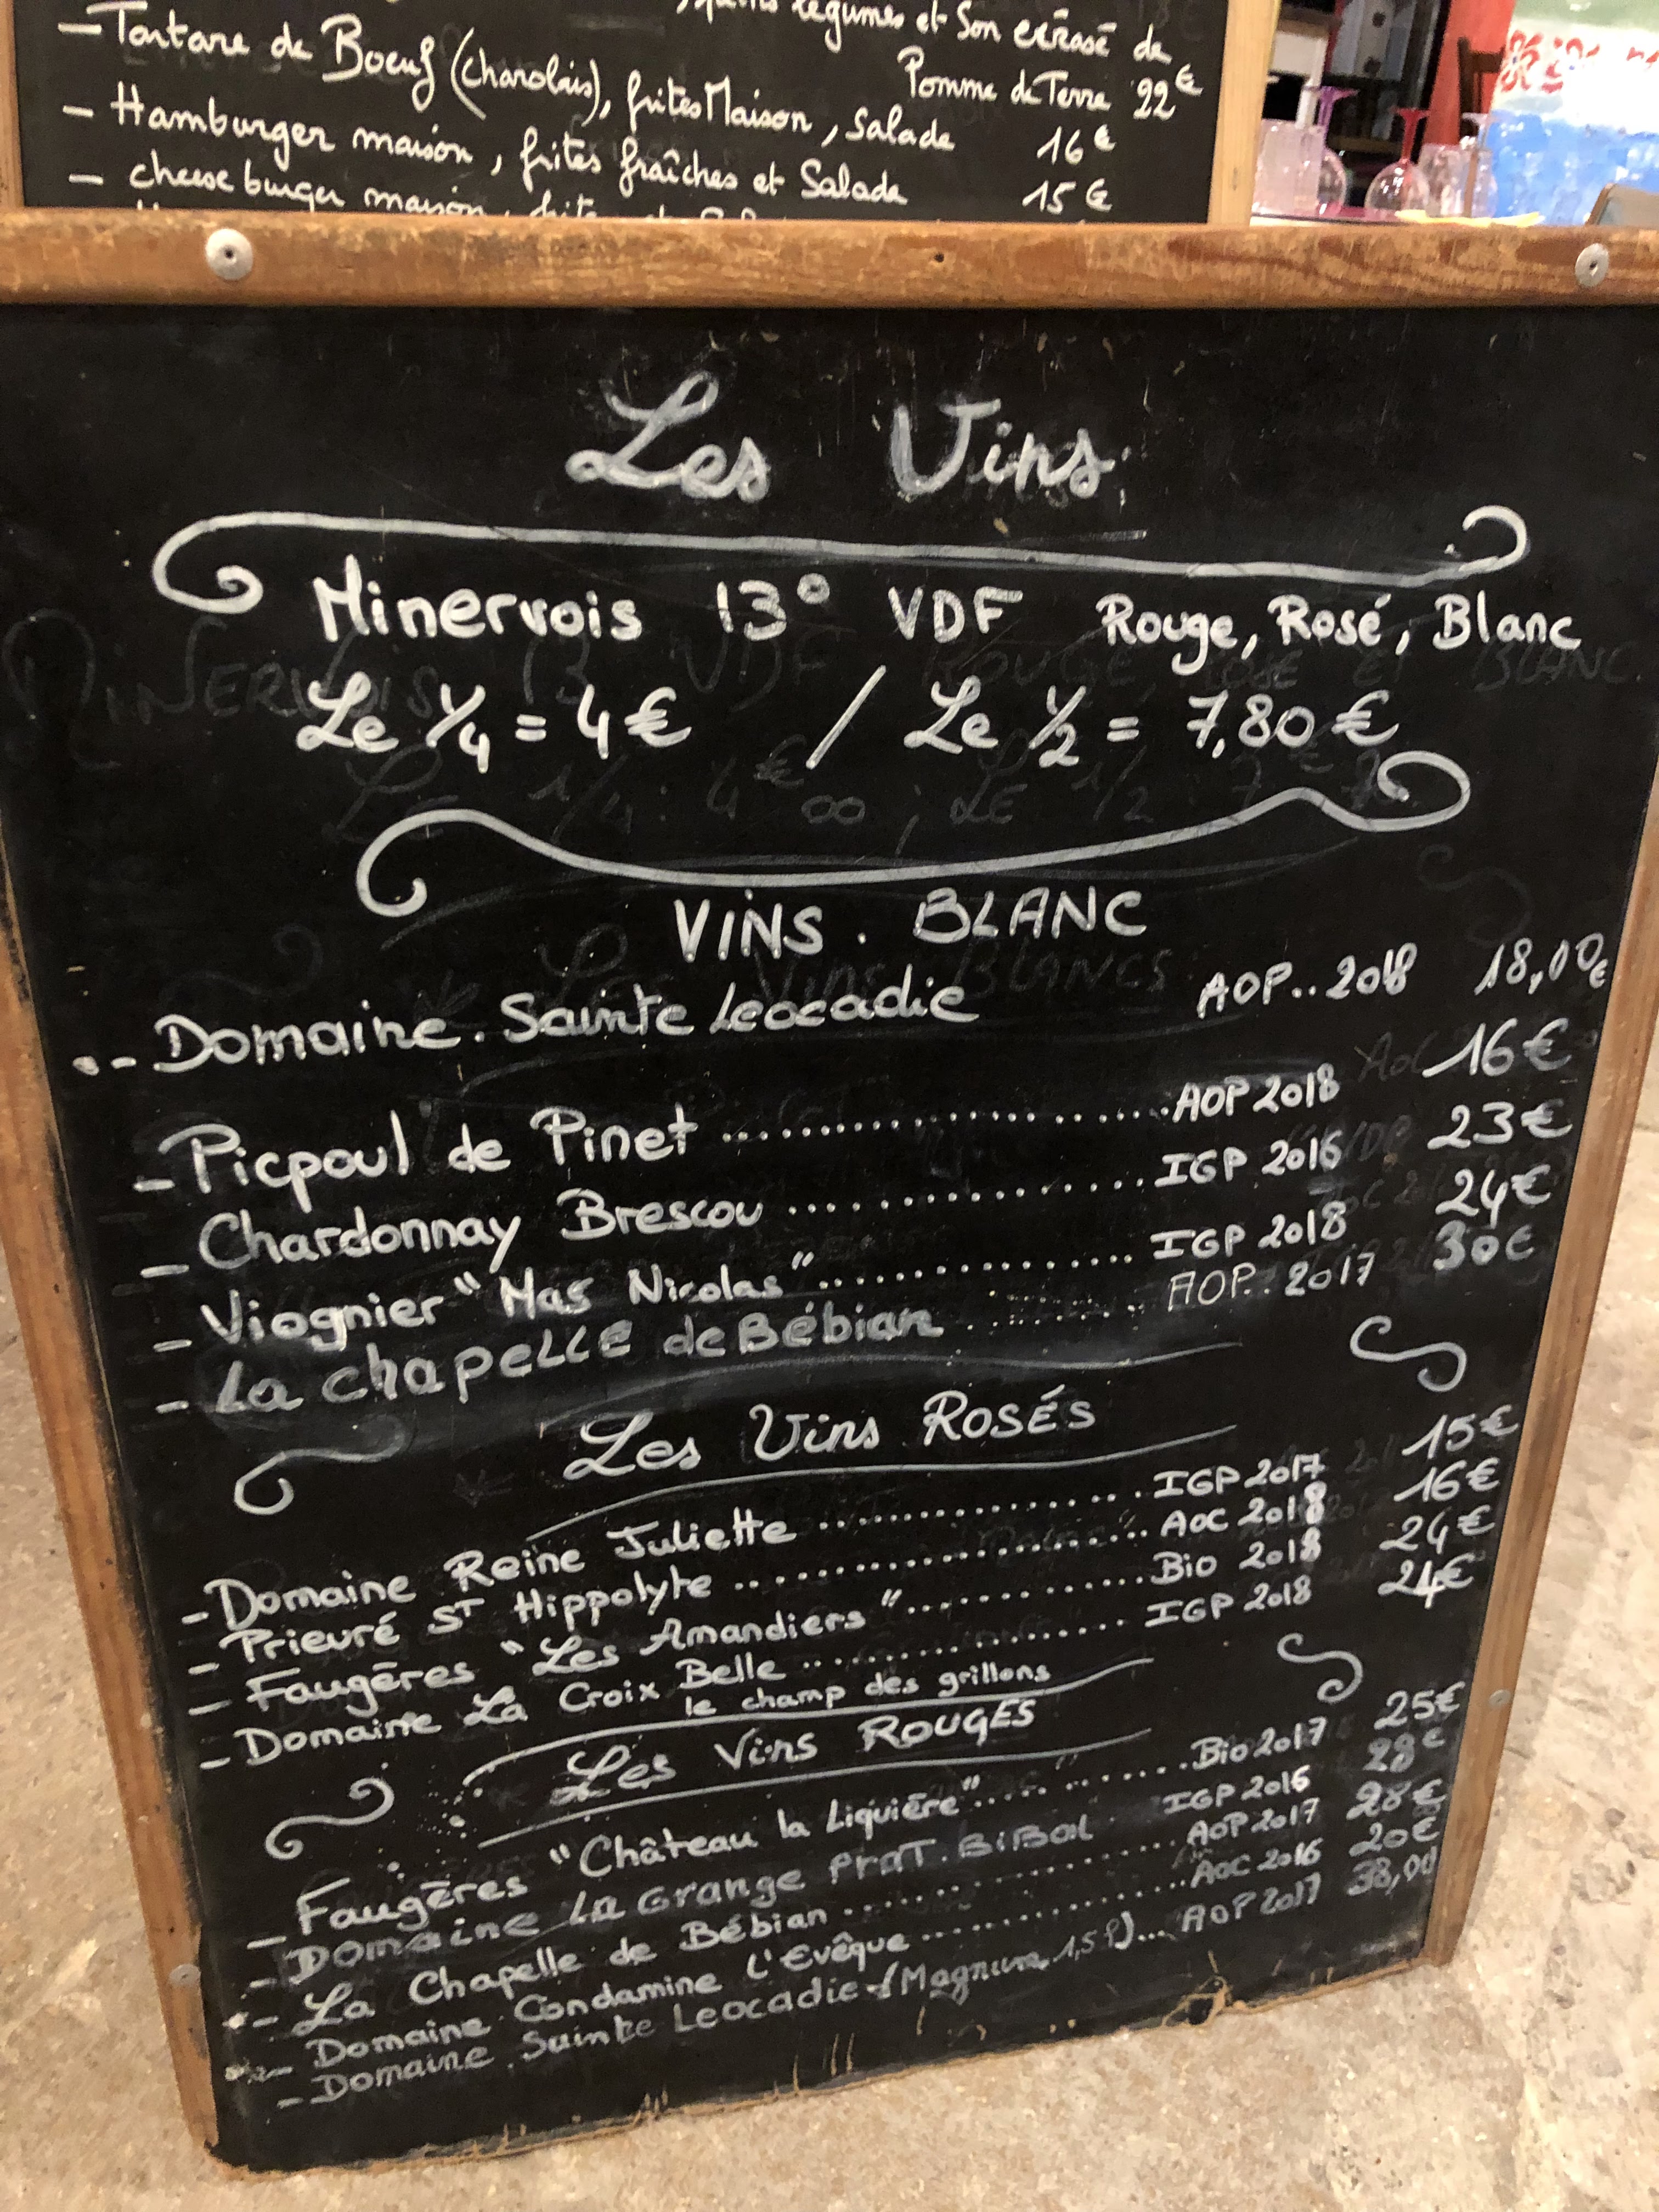 légumes et Son écrasé de
Pomme de Terre 22€
- Tartare de Boeuf (charolais), frites Maison, Salade 16€
- Hamburger maison, frites fraîches et Salade 15€
- cheese burger maison,
Les Vins
Minervois 13° VDF Rouge, Rosé, Blanc
Le 1/4 = 4€ / Le 1/2 = 7,80€
VINS. BLANC
-- Domaine. Sainte Leocadie AOP..2018 18,00€
- Picpoul de Pinet .................... AOP 2018 16€
- Chardonnay Brescou .................. IGP 2016 23€
- Viognier "Mas Nicolas"................. IGP 2018 24€
- La chapELLE de Bébian .......... AOP.. 2017 30€
Les Vins ROSÉS
- Domaine Reine Juliette .................. IGP 2017 15€
- Prieuré ST Hippolyte ...................... AOC 2018 16€
- Faugēres "Les Amandiers"............. Bio 2018 24€
- Domaine La Croix Belle .................. IGP 2018 24€
le champ des grillons
Les Vins ROUGES
- Faugēres "Château la Liquiēre" ............ Bio 2017 25€
- Domaine La Grange Prat. BiBal IGP 2016 28€
- La Chapelle de Bébian .................. AOP 2017 28€
- Domaine Condamine L'Evêque ................ AOC 2016 20€
- Domaine. Sainte Leocadie (Magnum 1,5 l)... AOP 2017 38,00